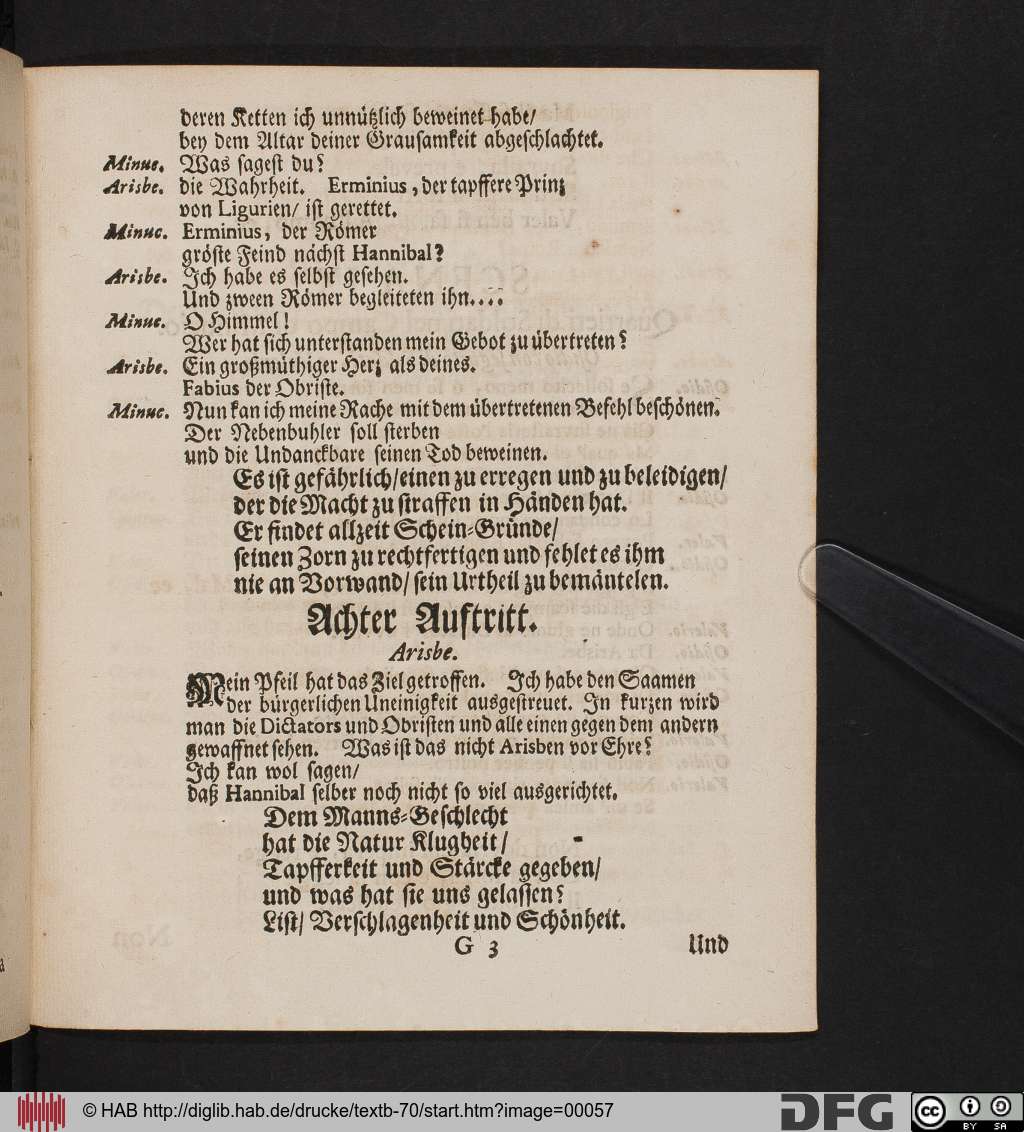 deren Ketten ich unnützlich beweinet habe/
bey dem Altar deiner Grausamkeit abgeschlachtet.
Minuc. Was sagest du?
Arisbe. die Wahrheit. Erminius, der tapffere Prinz
von Ligurien/ ist gerettet.
Minuc. Erminius, der Römer
gröste Feind nächst Hannibal?
Arisbe. Ich habe es selbst gesehen.
Und zween Römer begleiteten ihn....
Minuc. O Himmel!
Wer hat sich unterstanden mein Gebot zu übertreten?
Arisbe. Ein großmüthiger Herz als deines.
Fabius der Obriste.
Minuc. Nun kan ich meine Rache mit dem übertretenen Befehl beschönen.
Der Nebenbuhler soll sterben
und die Undanckbare seinen Tod beweinen.
Es ist gefährlich/einen zu erregen und zu beleidigen/
der die Macht zu straffen in Händen hat.
Er findet allzeit Schein-Gründe/
seinen Zorn zu rechtfertigen und fehlet es ihm
nie an Vorwand/ sein Urtheil zu bemäntelen.
Achter Auftritt.
Arisbe.
Mein Pfeil hat das Ziel getroffen. Ich habe den Saamen
der bürgerlichen Uneinigkeit ausgestreuet. In kurzen wird
man die Dictators und Obristen und alle einen gegen dem andern
gewaffnet sehen. Was ist das nicht Arisben vor Ehre?
Ich kan wol sagen/
daß Hannibal selber noch nicht so viel ausgerichtet.
Dem Manns-Geschlecht
hat die Natur Klugheit/
Tapfferkeit und Stärcke gegeben/
und was hat sie uns gelassen?
List/ Verschlagenheit und Schönheit.
G 3 Und
© HAB http://diglib.hab.de/drucke/textb-70/start.htm?image=00057
DFG
cc BY SA